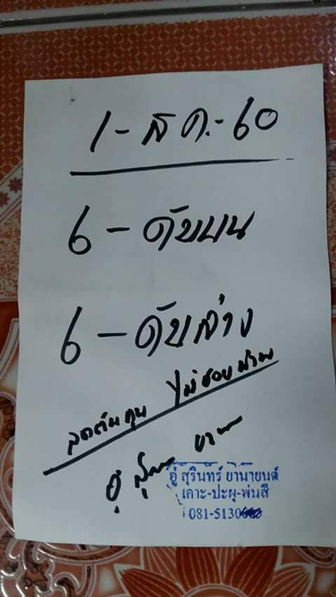 1-สค.-60
6-ดับบน
6-ดับล่าง
ลดต้นทุน ไม่ชอบผ่าน
อู่ สุ
อู่ สุรินทร์ ยานายนต์
เคาะ-ปะผุ-พ่นสี
081-5130